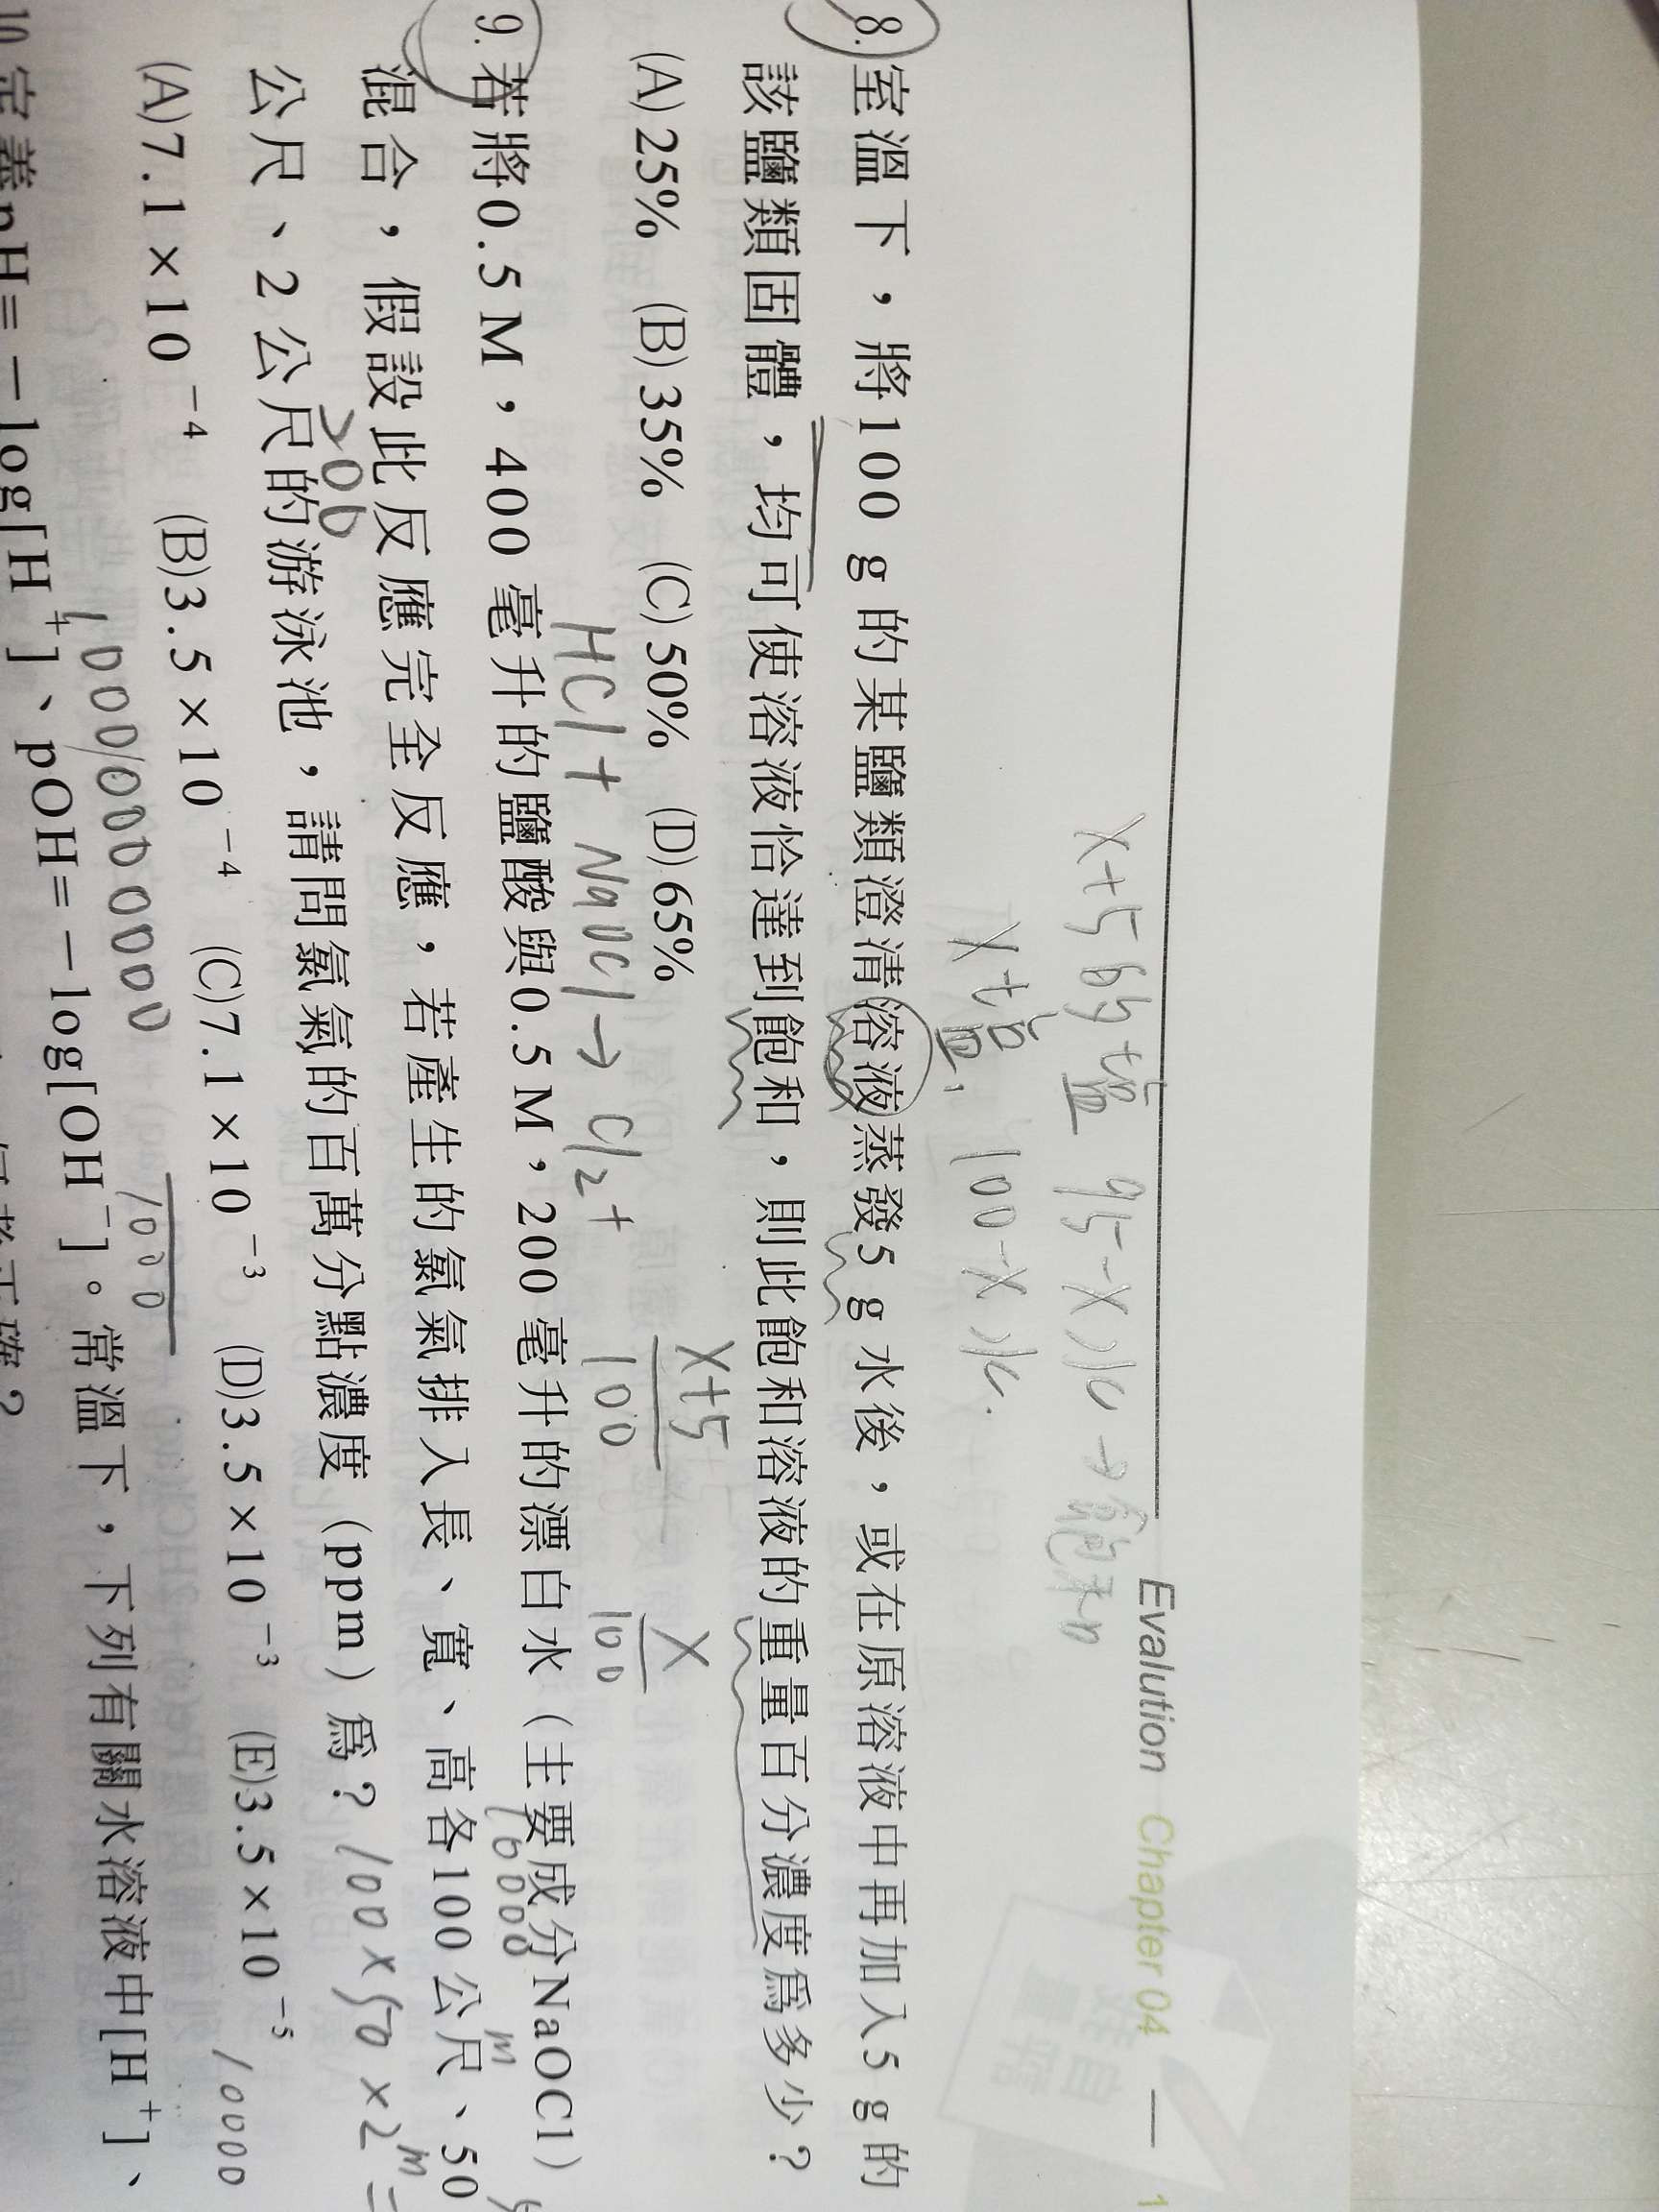 Evalution Chapter 04 — 1
X+5的鹽 95-X水→飽和
X鹽, 100-X水.
8. 室溫下,將100 g 的某鹽類澄清溶液蒸發5 g 水後,或在原溶液中再加入5 g 的
該鹽類固體,均可使溶液恰達到飽和,則此飽和溶液的重量百分濃度為多少?
(A) 25% (B) 35% (C) 50% (D) 65%
X+5
100
X
100
HCl + NaOCl → Cl2 +
9. 若將0.5 M,400 毫升的鹽酸與0.5 M,200 毫升的漂白水(主要成分NaOCl)
10000
混合,假設此反應完全反應,若產生的氯氣排入長、寬、高各100 公尺、50
m
公尺、2 公尺的游泳池,請問氯氣的百萬分點濃度(ppm)為?
100×50×2 m =
(A)7.1×10⁻⁴ (B)3.5×10⁻⁴ (C)7.1×10⁻³ (D)3.5×10⁻³ (E)3.5×10⁻⁵
10000
1000
10. 定義pH=-log[H⁺]、pOH=-log[OH⁻]。常溫下,下列有關水溶液中[H⁺]、